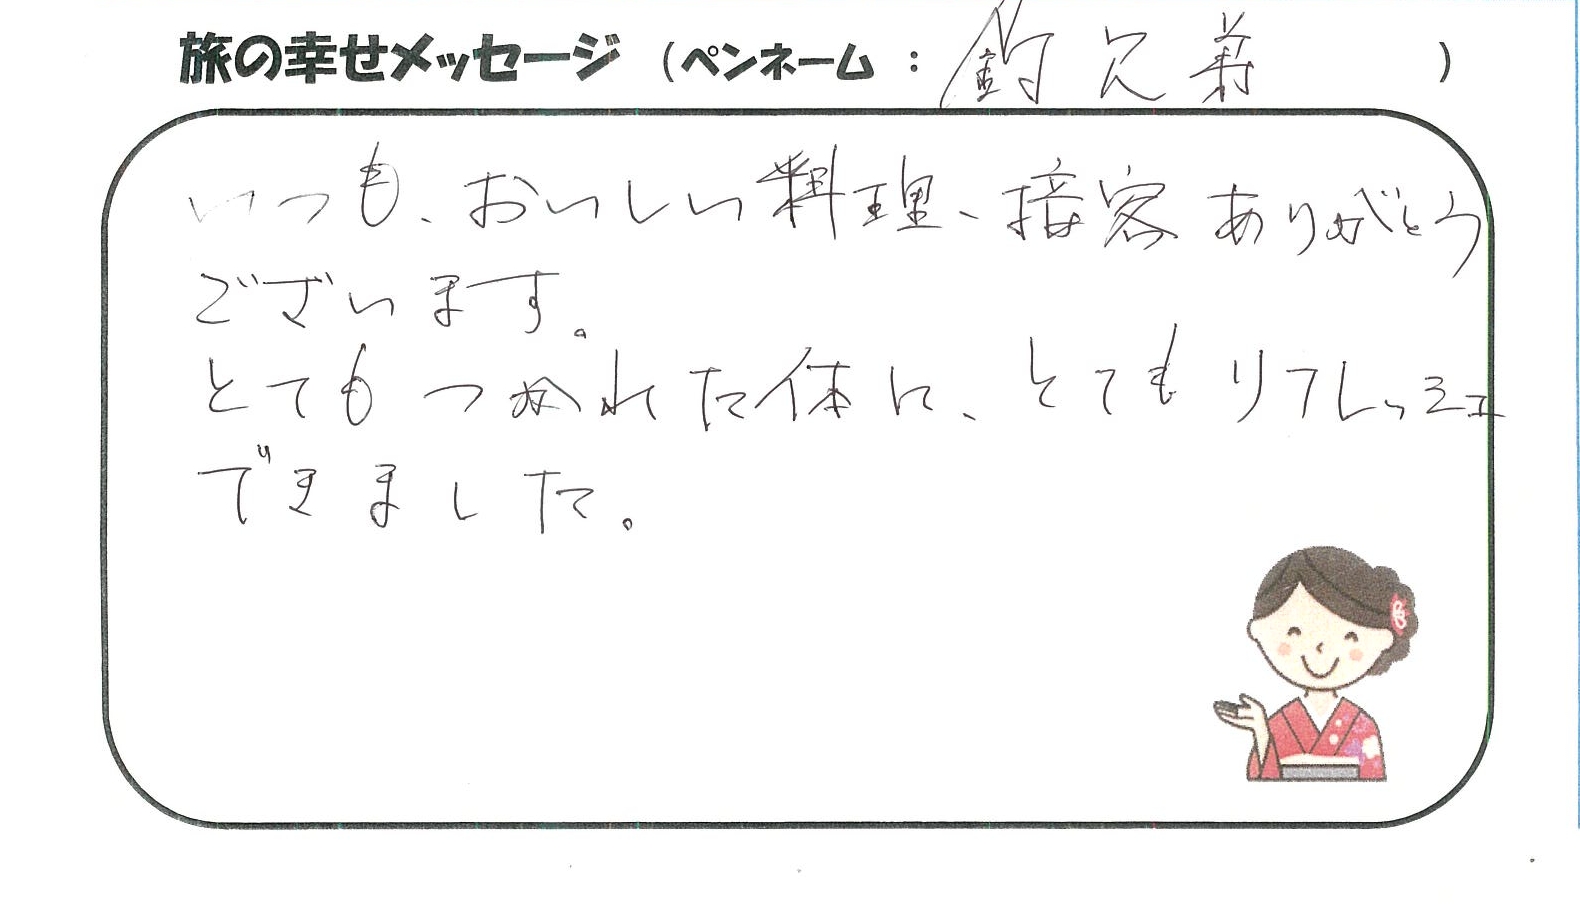 旅の幸せメッセージ (ペンネーム : 釣 )
いつも、おいしい料理、接客ありがとう
ございます。
とてもつかれた体に、とてもリフレッシュ
できました。